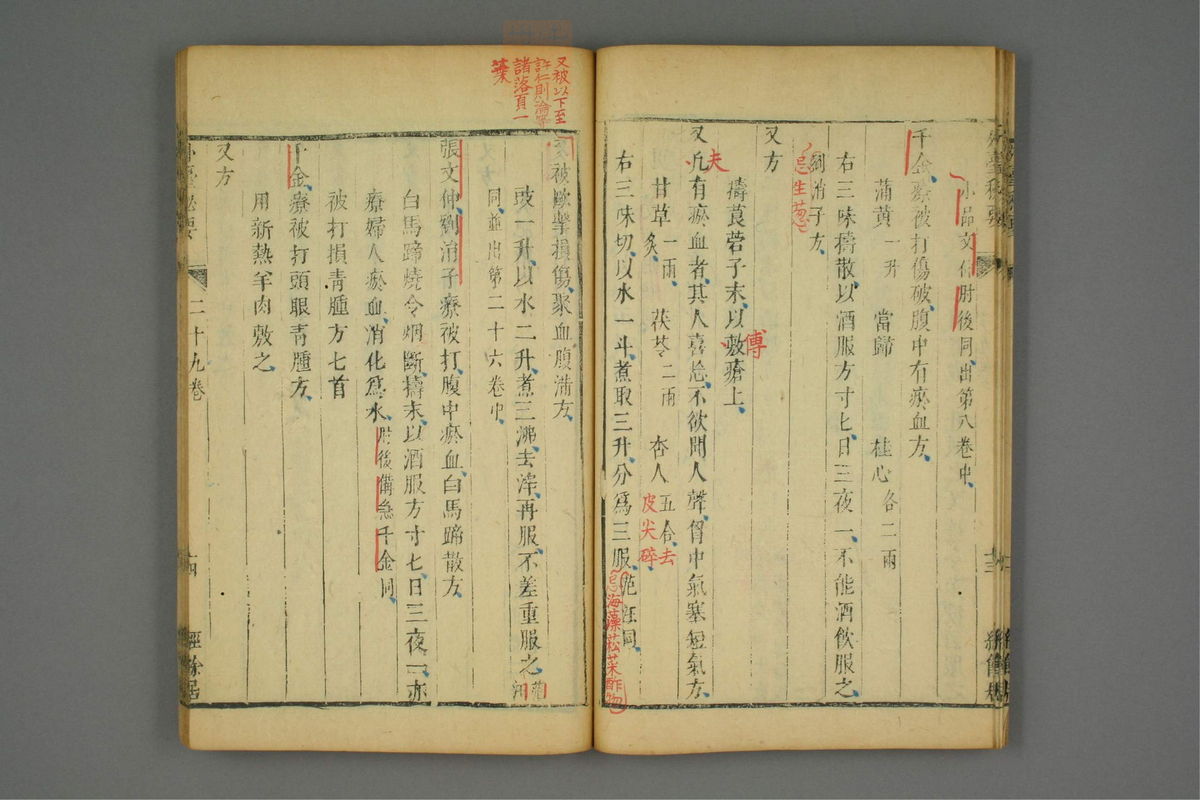 小品文仲肘後同出第八卷中
千金療被打傷破腹中有瘀血方
蒲黃一升 當歸 桂心各二兩
右三味擣散以酒服方寸七日三夜一不能酒飲服之
忌生葱
劉涓子方
又方
擣莨菪子末以敷瘡上
傅
夫
又凡有瘀血者其人喜忘不欲聞人聲胷中氣塞短氣方
甘草一兩炙 茯苓二兩 杏人五合
去皮尖碎
右三味切以水一斗煮取三升分爲三服范汪同
忌海藻菘菜酢物
又被以下至
許仁則論
諸落頁一
葉
又被毆擊損傷聚血腹滿方
豉一升以水二升煮三沸去滓再服不差重服之范汪
同並出第二十六卷中
張文仲劉涓子療被打腹中瘀血白馬蹄散方
白馬蹄燒令烟斷擣末以酒服方寸七日三夜一亦
療婦人瘀血消化爲水肘後備急千金同
被打損青腫方七首
千金療被打頭眼青腫方
用新熱羊肉敷之
又方
外臺秘要 二十九卷 十四 經餘居